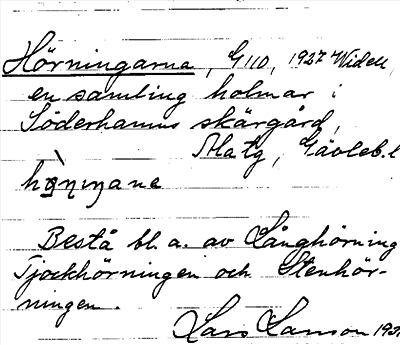 Hörningarna, G110, 1927 Widell
en samling holmar i
Söderhamns skärgård,
Gävleb. l
Bestå bl. a. av Långhörning
Tjockhörningen och Stenhör-
ningen.
Lars Larson